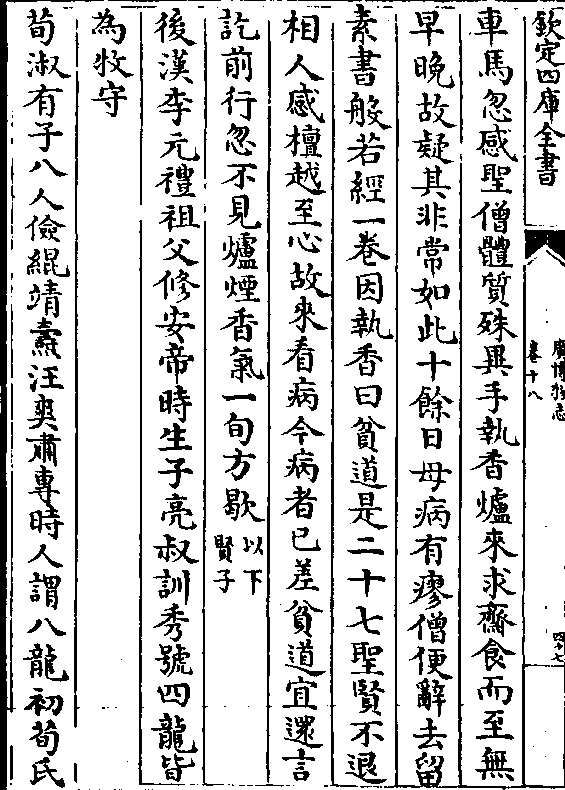 欽定四庫全書
廣博物志
卷十八
四十七
車馬忽感聖僧體質殊異手執香爐來求齋食而至無
早晩故疑其非常如此十餘日母病有瘳僧便辭去留
素書般若經一卷因執香曰貧道是二十七聖賢不退
相人感檀越至心故來看病今病者已差貧道宜還言
訖前行忽不見爐煙香氣一旬方歇以下賢子
後漢李元禮祖父修安帝時生子亮叔訓秀號四龍皆
為牧守
荀淑有子八人儉緄靖燾汪爽肅專時人謂八龍初荀氏